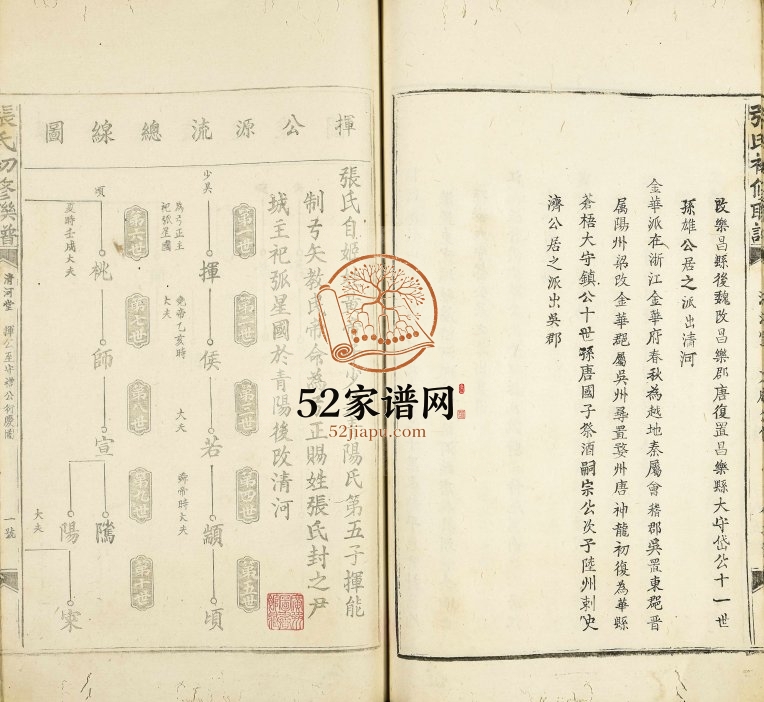 改樂昌縣後魏改昌樂郡唐復置昌樂縣大守岱公十一世
孫雄公居之派出清河
金華派在浙江金華府春秋為越地秦屬會稽郡吳置東郡晋
屬陽州梁改金華郡屬吳州尋置婺州唐神龍初復為華縣
蒼梧大守鎮公十世孫唐國子祭酒嗣宗公次子陸州刺史
濟公居之派出吳郡
揮公源流總線圖
張氏自姬
陽氏第五子揮能
制弓矢教民帝命為
正賜姓張氏封之尹
城主祀弧星國於青陽後改清河
第一世
第二世
第三世
第四世
第五世
少昊
揮
侯
若
顓
頃
為弓正主
祀弧星國
堯帝乙亥時
大夫
大夫
舜帝時大夫
第六世
第七世
第八世
第九世
第十世
頃
桃
師
宣
隲
陽
寀
夏時壬戌大夫
大夫
張氏初修聯譜
清河堂
一號
52家谱网
52jiapu.com